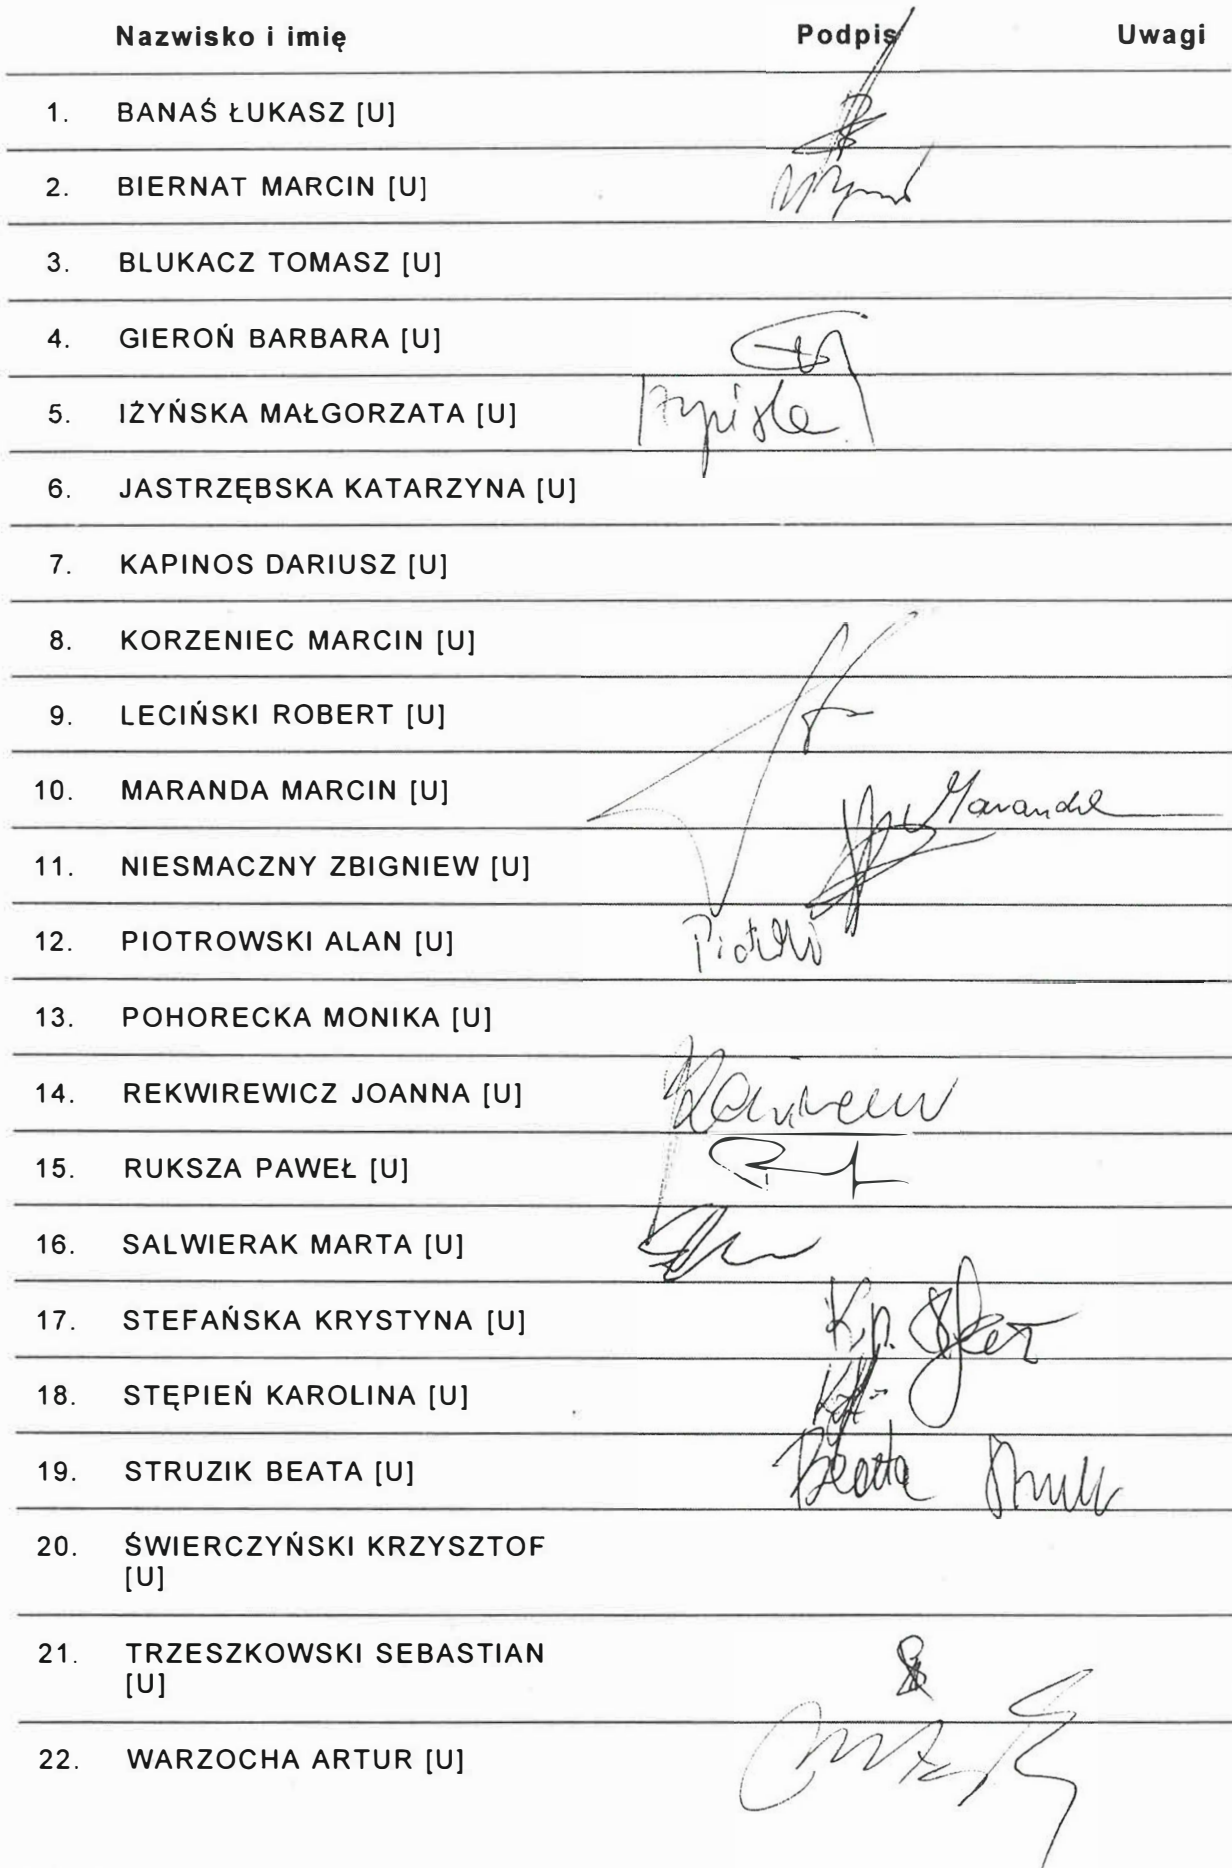 Nazwisko i imię Podpis Uwagi
1. BANAŚ ŁUKASZ [U]
2. BIERNAT MARCIN [U]
3. BLUKACZ TOMASZ [U]
4. GIEROŃ BARBARA [U]
5. IŻYŃSKA MAŁGORZATA [U]
6. JASTRZĘBSKA KATARZYNA [U]
7. KAPINOS DARIUSZ [U]
8. KORZENIEC MARCIN [U]
9. LECIŃSKI ROBERT [U]
10. MARANDA MARCIN [U] Maranda
11. NIESMACZNY ZBIGNIEW [U]
12. PIOTROWSKI ALAN [U]
13. POHORECKA MONIKA [U]
14. REKWIREWICZ JOANNA [U]
15. RUKSZA PAWEŁ [U]
16. SALWIERAK MARTA [U]
17. STEFAŃSKA KRYSTYNA [U]
18. STĘPIEŃ KAROLINA [U]
19. STRUZIK BEATA [U] Beata
20. ŚWIERCZYŃSKI KRZYSZTOF
[U]
21. TRZESZKOWSKI SEBASTIAN
[U]
22. WARZOCHA ARTUR [U]